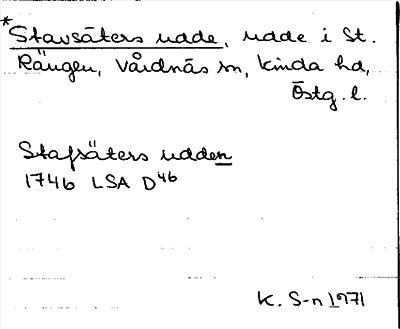 *Stavsäters udde, udde i St.
Rängen, Vårdnäs sn, Kinda hd,
Östg. l.
Stafsäters udden
1746 LSA D46
K. S-n 1971